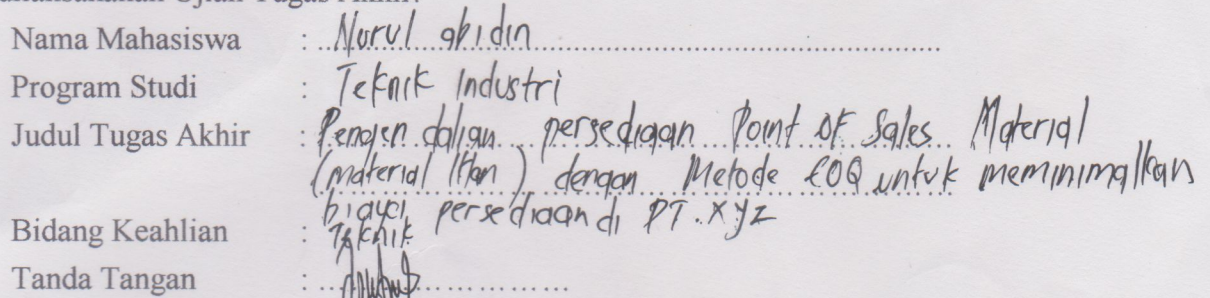 Nama Mahasiswa : Nurul abidin
Program Studi : Teknik Industri
Judul Tugas Akhir : Pengendalian persediaan Point Of Sales Material
(material Iklan) dengan Metode EOQ untuk meminimalkan
biaya persediaan di PT. xyz
Bidang Keahlian : Teknik
Tanda Tangan :